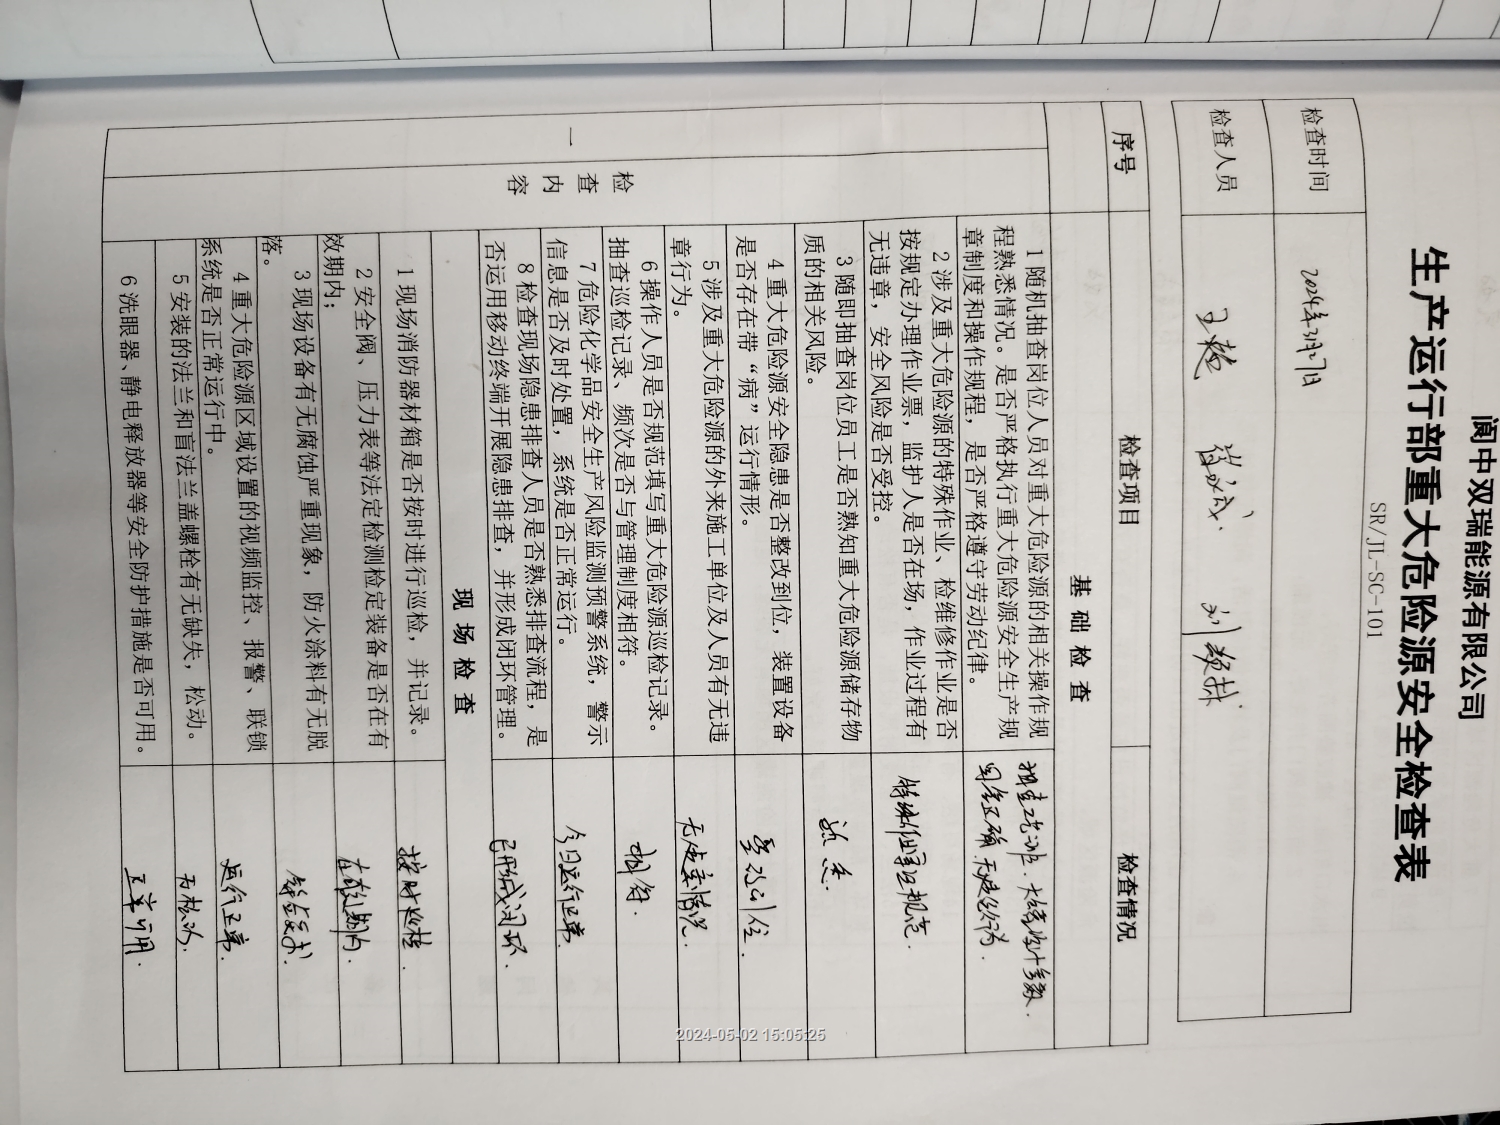 阆中双瑞能源有限公司
生产运行部重大危险源安全检查表
SR/JL-SC-101
检查时间
2024年3月27日
检查人员
序号
检查项目
检查情况
一
检查内容
基础检查
1 随机抽查岗位人员对重大危险源的相关操作规
程熟悉情况。是否严格执行重大危险源安全生产规
章制度和操作规程，是否严格遵守劳动纪律。
无违章行为.
2 涉及重大危险源的特殊作业、检维修作业是否
按规定办理作业票，监护人是否在场，作业过程有
无违章，安全风险是否受控。
特殊作业管理规范.
3 随即抽查岗位员工是否熟知重大危险源储存物
质的相关风险。
熟悉.
4 重大危险源安全隐患是否整改到位，装置设备
是否存在带“病”运行情形。
整改到位.
5 涉及重大危险源的外来施工单位及人员有无违
章行为。
无违章情况.
6 操作人员是否规范填写重大危险源巡检记录。
抽查巡检记录、频次是否与管理制度相符。
相符.
7 危险化学品安全生产风险监测预警系统，警示
信息是否及时处置，系统是否正常运行。
今日运行正常.
8 检查现场隐患排查人员是否熟悉排查流程，是
否运用移动终端开展隐患排查，并形成闭环管理。
已形成闭环.
现场检查
1 现场消防器材箱是否按时进行巡检，并记录。
按时检查.
2 安全阀、压力表等法定检测检定装备是否在有
效期内；
在有效期内.
3 现场设备有无腐蚀严重现象，防火涂料有无脱
落。
4 重大危险源区域设置的视频监控、报警、联锁
系统是否正常运行中。
运行正常.
5 安装的法兰和盲法兰盖螺栓有无缺失，松动。
无松动.
6 洗眼器、静电释放器等安全防护措施是否可用。
正常可用.
2024-05-02 15:05:25